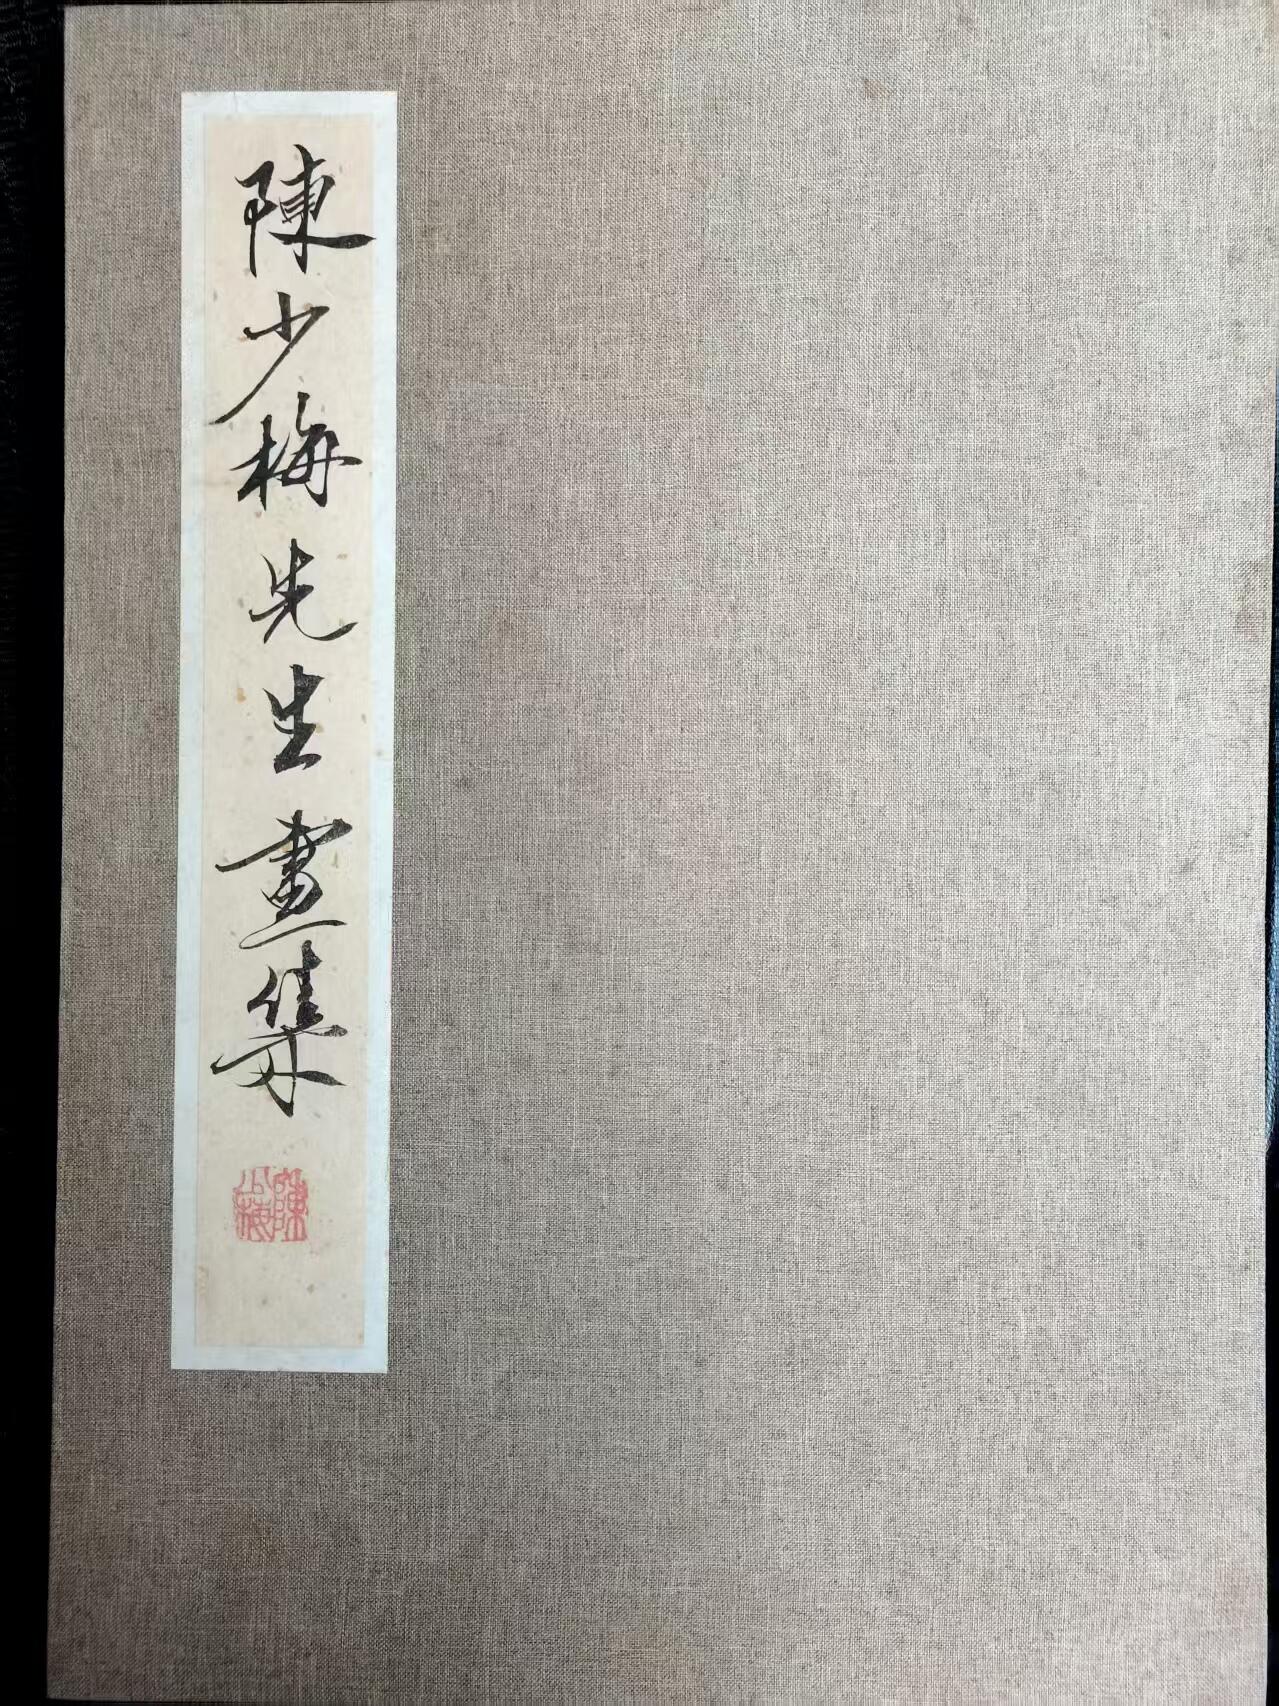 陳少梅先生畫集
陳少梅